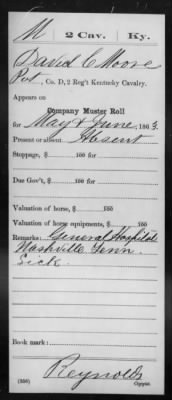 M 2 Cav. Ky.
David C Moore
Pvt, Co. D, 2 Reg't Kentucky Cavalry.
Appears on
Company Muster Roll
for May & June, 1863.
Present or absent Absent
Stoppage, $ 100 for
Due Gov't, $ 100 for
Valuation of horse, $ 100
Valuation of horse equipments, $ 100
Remarks: General Hospital
Nashville Tenn.
Sick.
Book mark:
Reynolds
(356) Copyist.